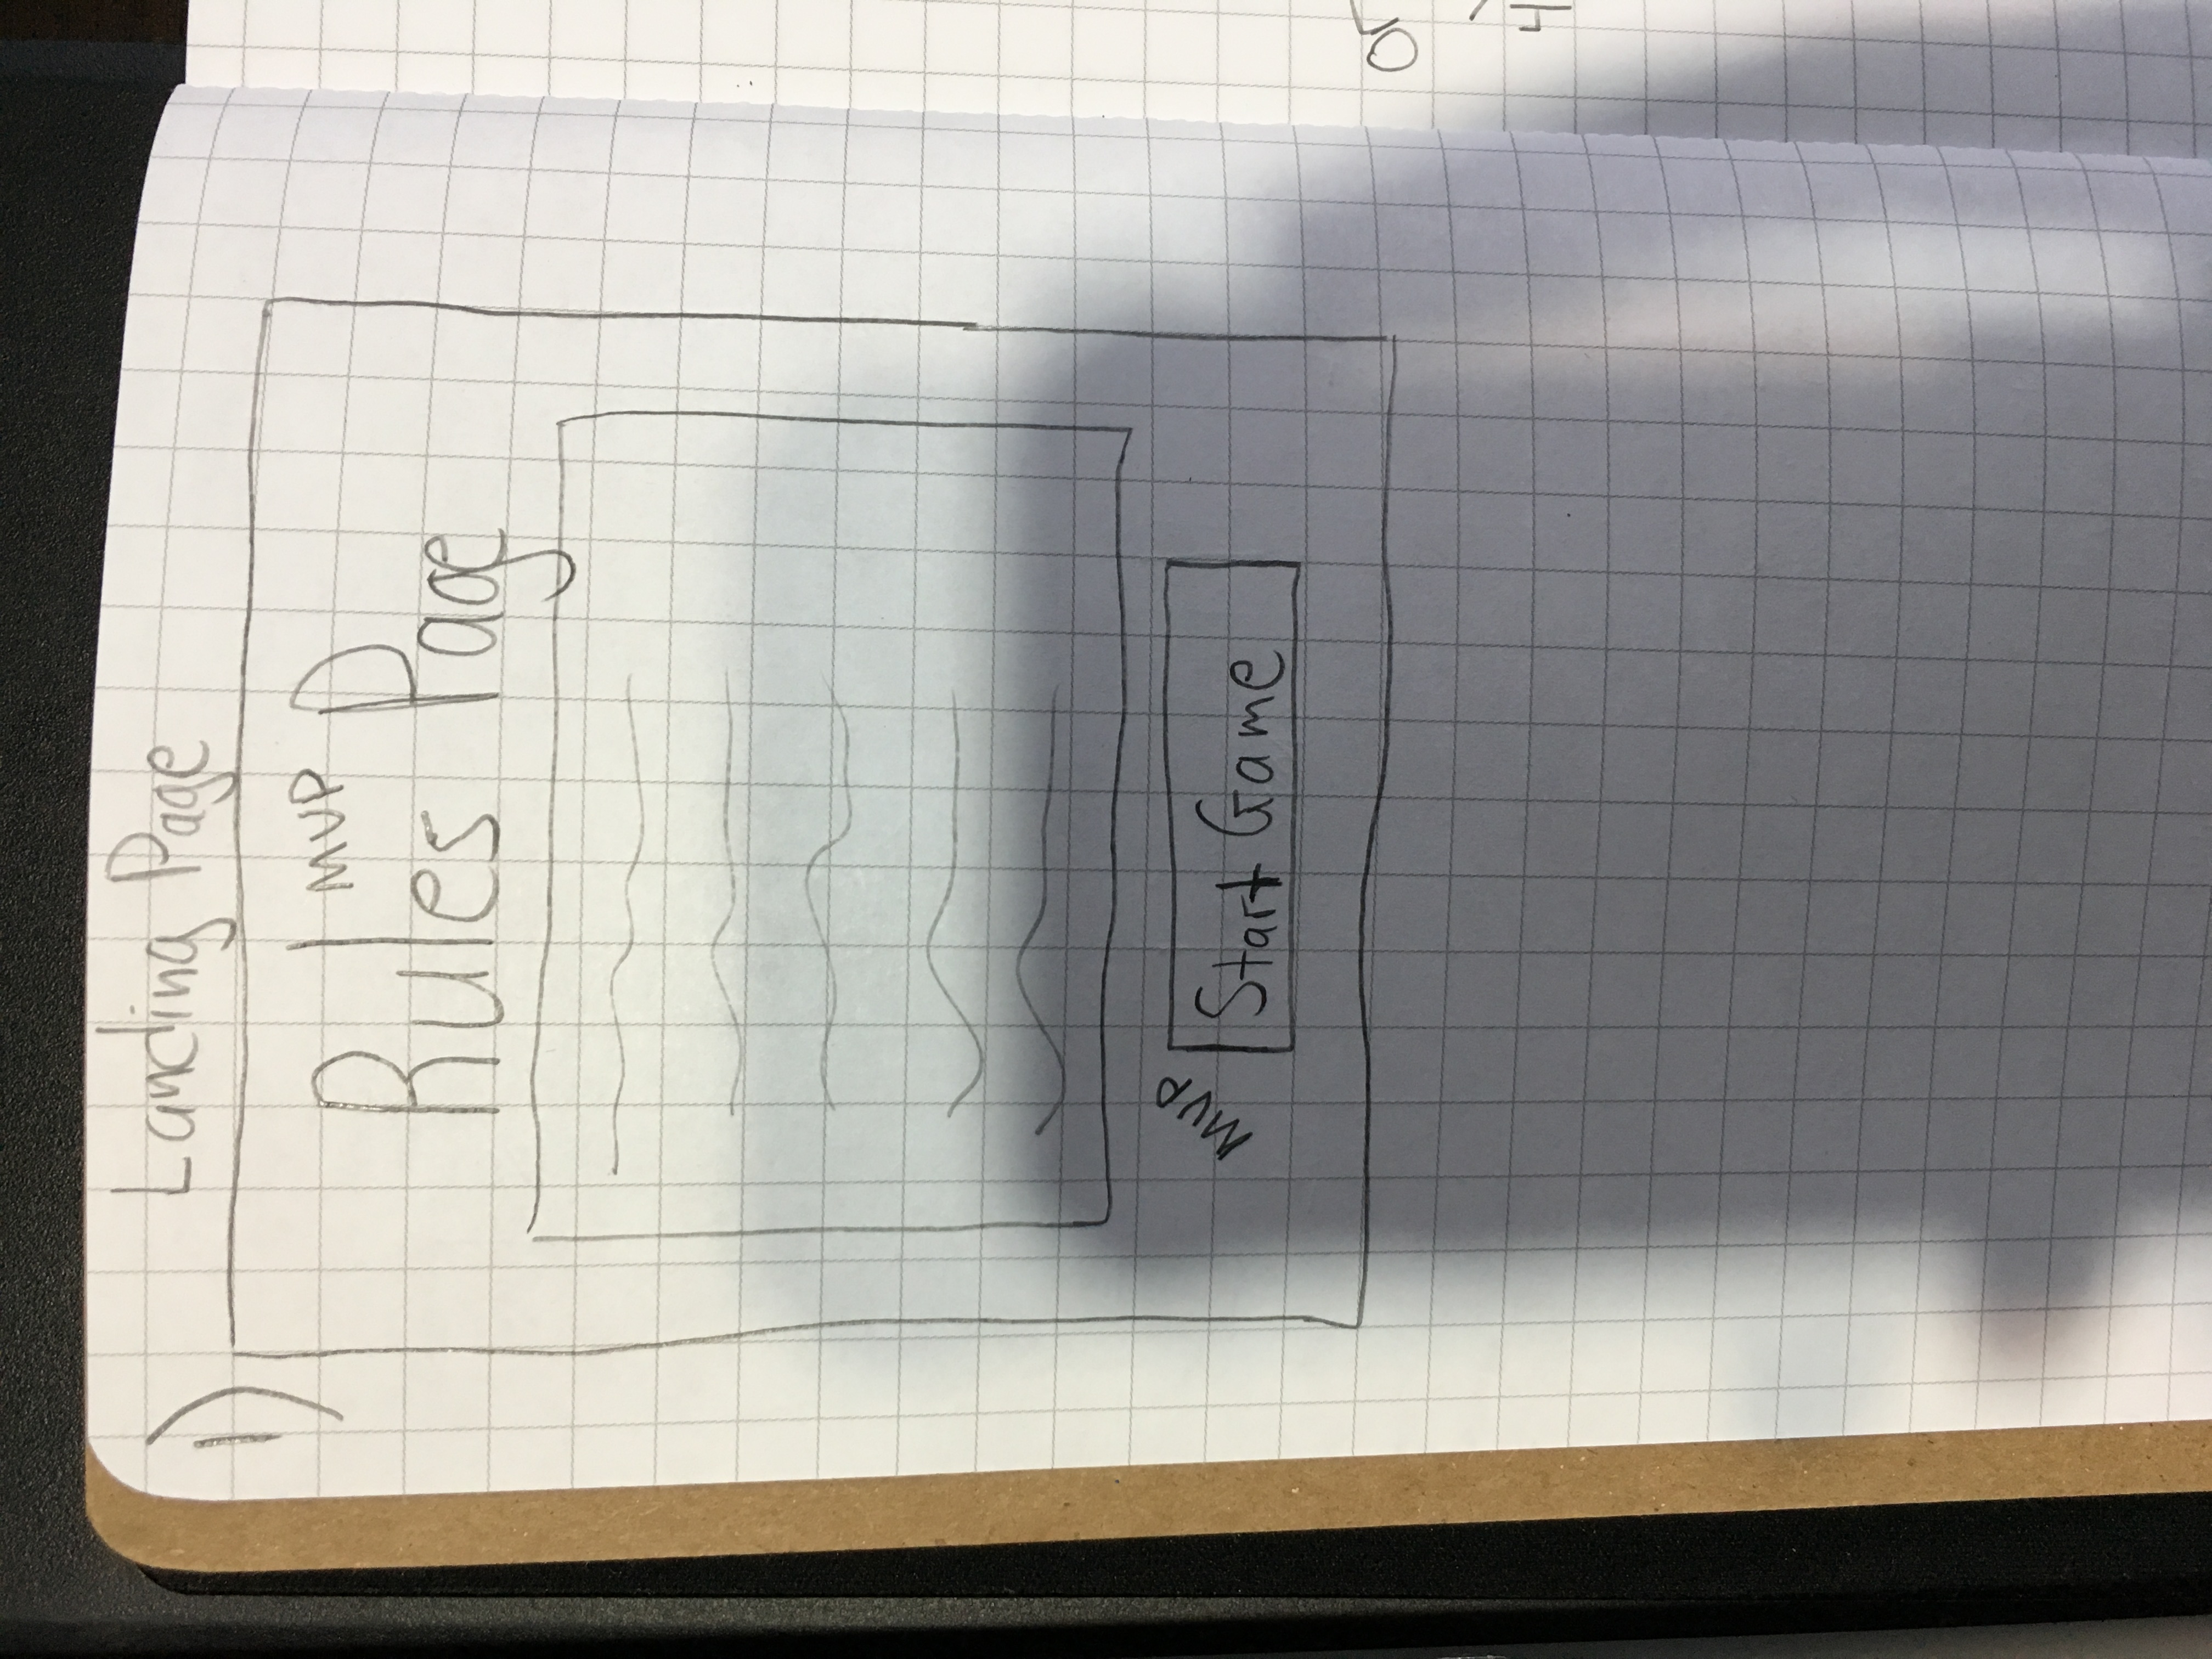 1) Landing Page
MVP
Rules Page
MVP
Start Game
or
4